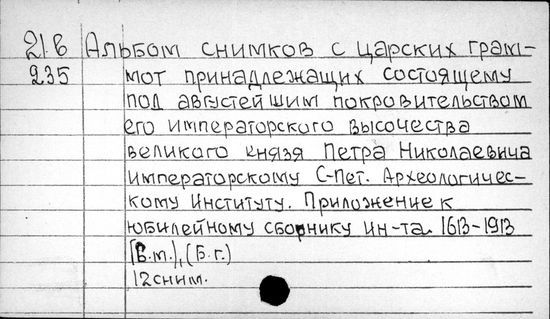 21.В Альбом снимков с царских грам-
235 мот принадлежащих состоящему
под августейшим покровительством
его императорского высочества
великого князя Петра Николаевича
императорскому С-Пет. Археологичес-
кому Институту. Приложение к
юбилейному сборнику ин-та. 1613-1913
[Б.м.], (Б.г.)
12 сним.